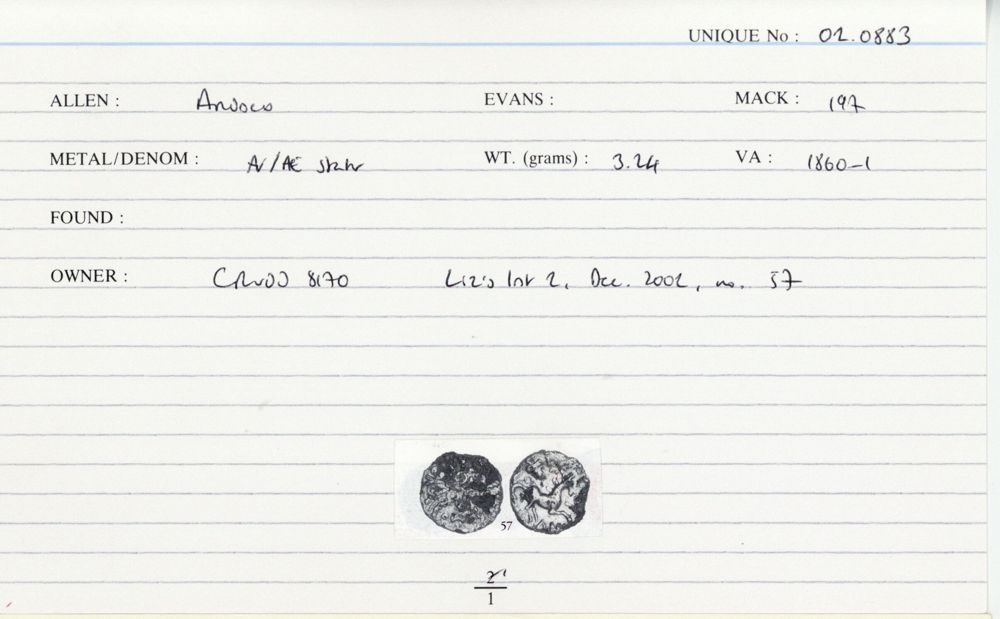 UNIQUE No : 02.0883
ALLEN : Andoco EVANS : MACK : 197
METAL/DENOM : AV/AE stater WT. (grams) : 3.24 VA : 1860-1
FOUND :
OWNER : 8170 Liz's 2, Dec. 2002, no. 57
57
1